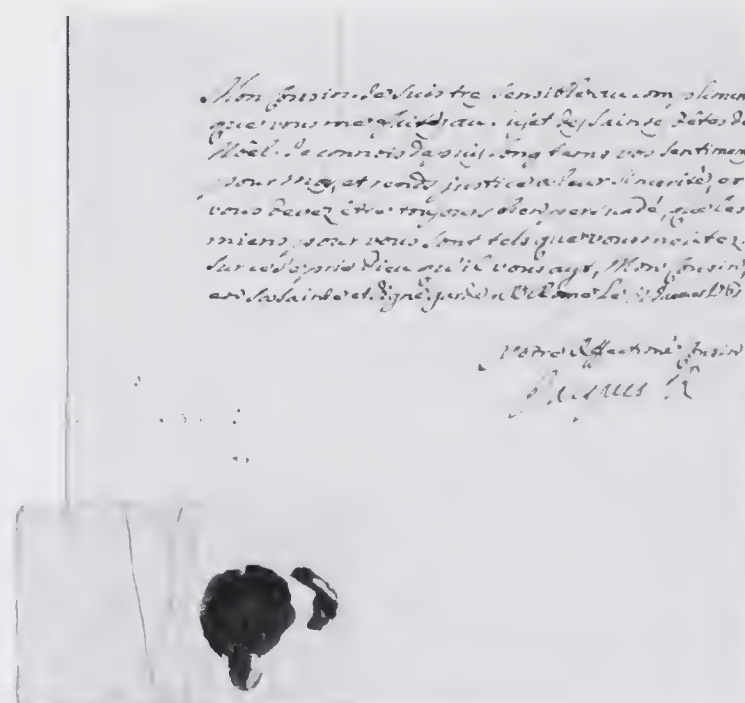 Mon Cousin. Je suis tre sensible au compliment
que vous me au sujet des Sainte fêtes de
Noël. Je connois depuis long tems vos sentimen
pour Moy, et rends justice a leur sincerité, et
vous devez être toujours bien persuadé, que les
miens pour vous sont tels que vous meritez.
Sur ce Je prie Dieu qu'il vous ayt, Mon Cousin,
en sa sainte et digne garde a Rome Le
Votre Affectioné Cousin
Jaques R